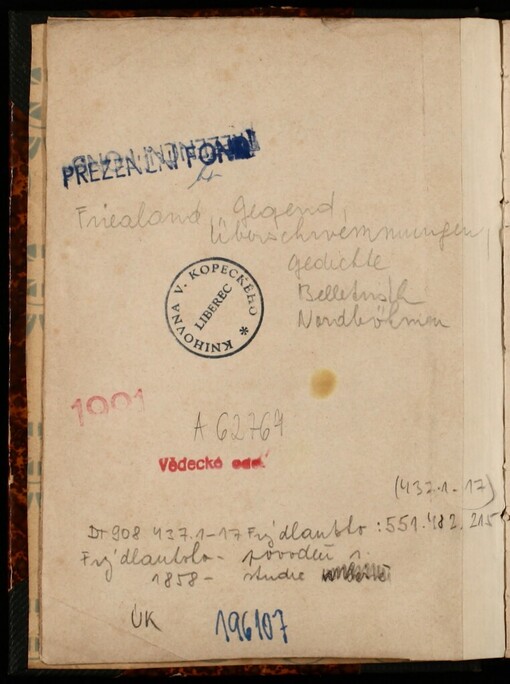 PREZENČNÍ FOND
Friedland, Gegend,
Überschwemmungen,
Gedichte
Belletristik
Nordböhmen
KNIHOVNA V. KOPECKÉHO *
LIBEREC
1991
A 62767
Vědecké odd.
(437.1-17)
Dt 908 437.1-17 Frýdlantsko : 551.482.215
Frýdlantsko - povodeň r.
1858 - studie
ÚK
196107